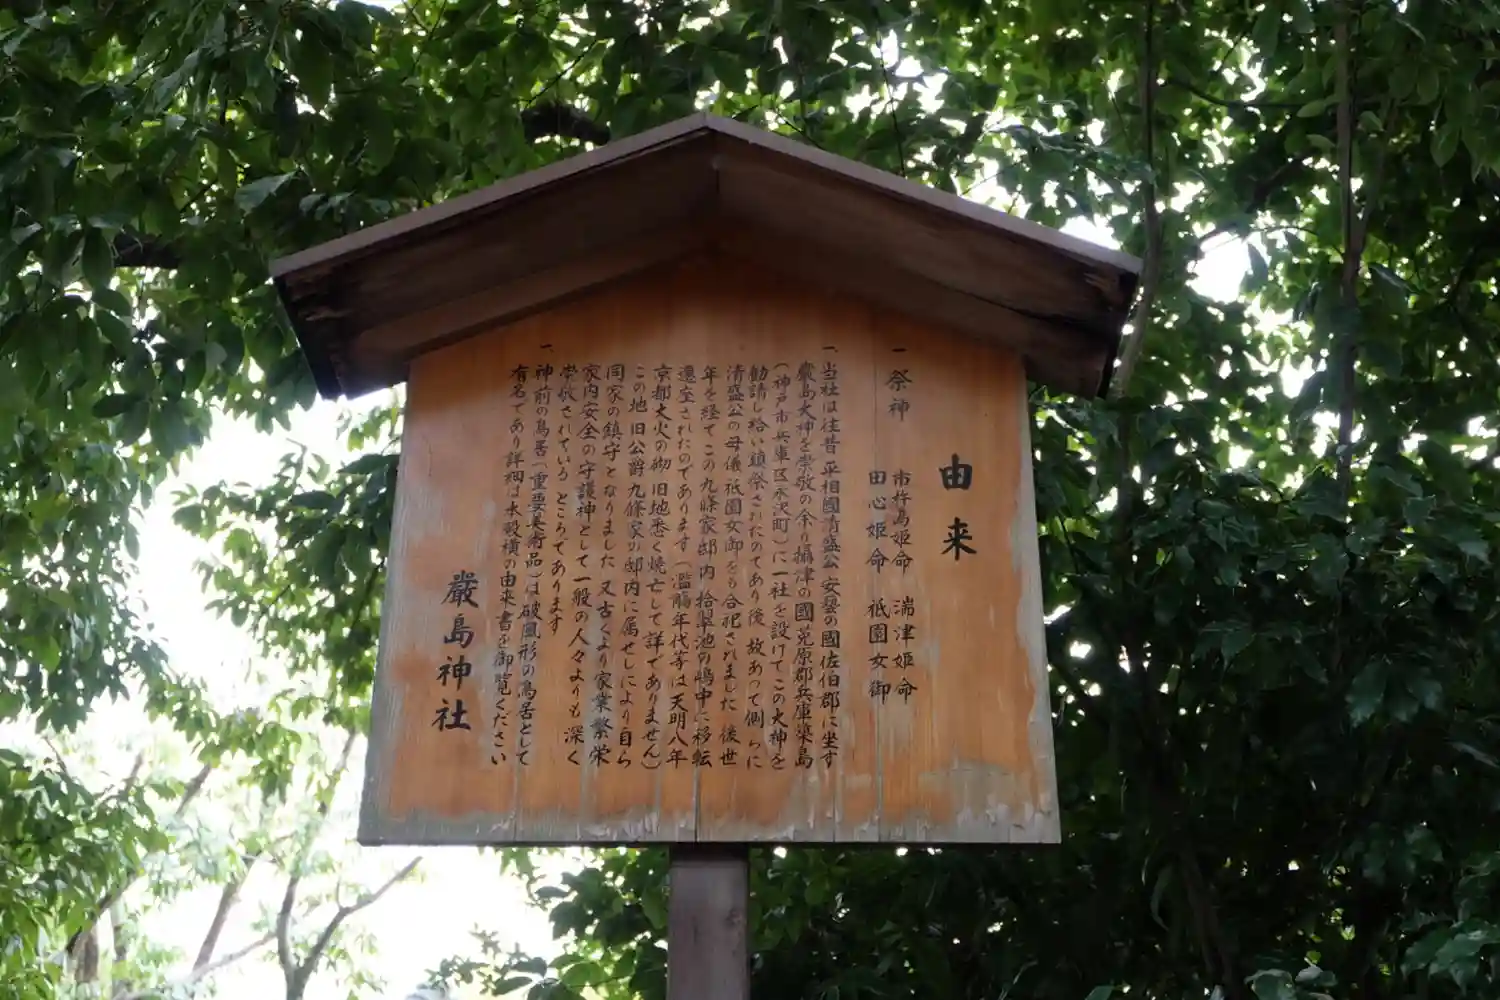 由来
一 祭神 市杵島姫命 湍津姫命
田心姫命 祇園女御
一、当社は往昔 平相國清盛公 安藝の國佐伯郡に坐す
嚴島大神を崇敬の余り攝津の國菟原郡兵庫築島
(神戸市兵庫区永沢町)に一社を設けてこの大神を
勧請し給い鎮祭されたのであり後 故あって側らに
清盛公の母儀祇園女御をも合祀されました 後世
年を経てこの九條家邸内 拾翠池の嶋中に移転
遷座されたのであります(濫觴年代等は天明八年
京都大火の砌 旧地悉く焼亡して詳でありません)
この地 旧公爵九條家の邸内に属せしにより自ら
同家の鎮守となりました 又古くより家業繁栄
家内安全の守護神として一般の人々よりも深く
崇敬されている ところであります
一、神前の鳥居(重要美術品)は破風形の鳥居として
有名であり詳細は本殿横の由来書を御覧ください
嚴島神社